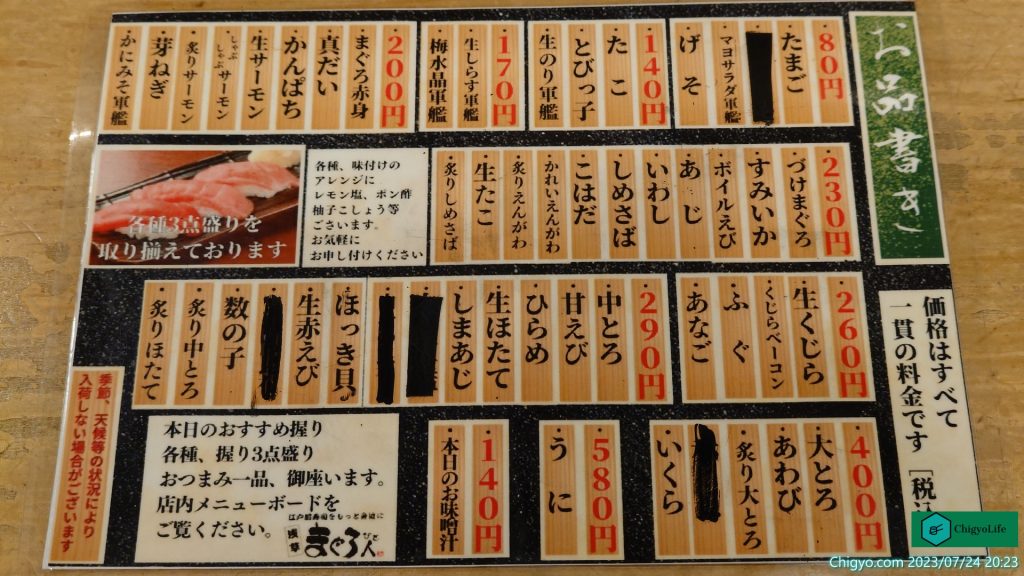 お品書き
80円
たまご
マヨサラダ軍艦
げそ
140円
たこ
とびっ子
生のり軍艦
170円
生しらす軍艦
梅水晶軍艦
200円
まぐろ赤身
真だい
かんぱち
生サーモン
しゃぶしゃぶサーモン
炙りサーモン
芽ねぎ
かにみそ軍艦
230円
づけまぐろ
すみいか
ボイルえび
あじ
いわし
しめさば
こはだ
かれいえんがわ
炙りえんがわ
生たこ
炙りしめさば
各種、味付けの
アレンジに
レモン塩、ポン酢
柚子こしょう等
ございます。
お気軽に
お申し付けください
各種3点盛りを
取り揃えております
価格はすべて
一貫の料金です［税込
260円
生くじら
くじらベーコン
ふぐ
あなご
290円
中とろ
甘えび
ひらめ
生ほたて
しまあじ
ほっき貝
生赤えび
数の子
炙り中とろ
炙りほたて
400円
大とろ
あわび
炙り大とろ
いくら
580円
うに
140円
本日のお味噌汁
本日のおすすめ握り
各種、握り3点盛り
おつまみ一品、御座います。
店内メニューボードを
ご覧ください。
江戸前寿司をもっと身近に
浅草
まぐろ人
びと
季節、天候等の状況により
入荷しない場合がございます
ChigyoLife
Chigyo.com 2023/07/24 20:23